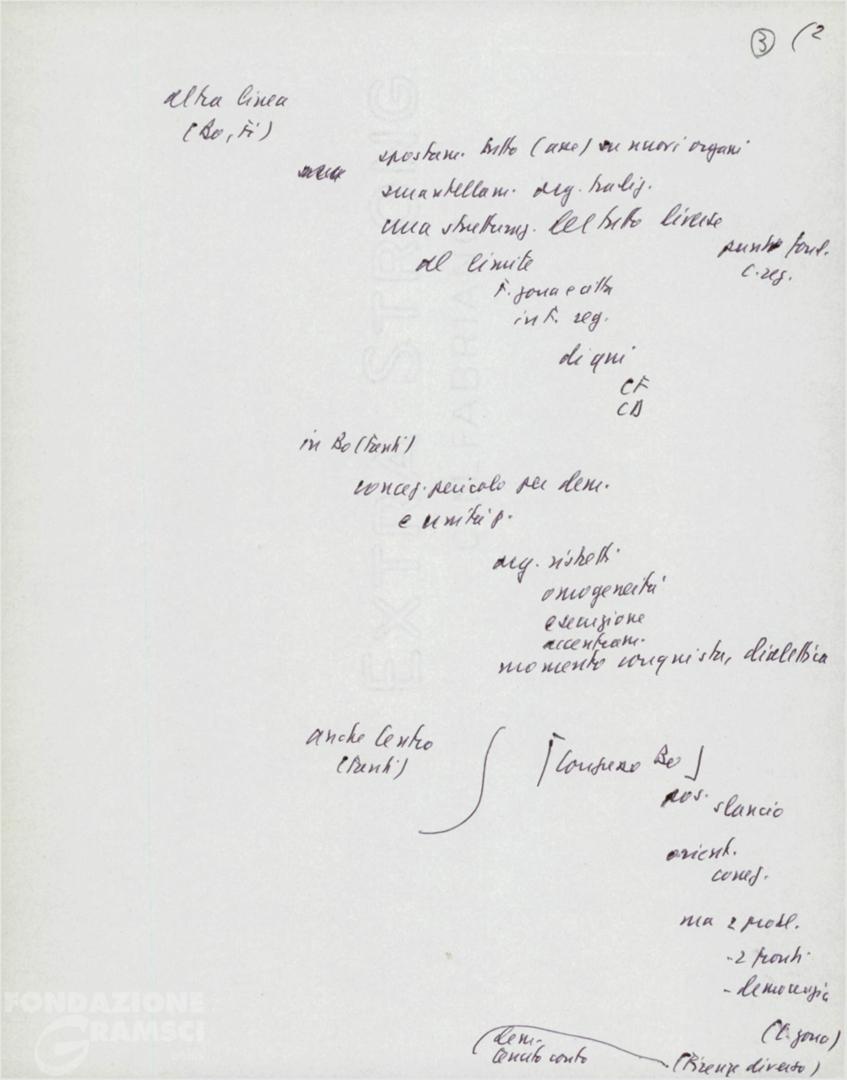 ③ (2
altra linea
(Bo, Fi)
spostam. tutto (asse) su nuovi organi
smantellam. org. tradiz.
una strutturaz. del tutto diversa
punto fond.
C. reg.
al limite
F. zona e città
in F. reg.
di qui
CF
CD
in Bo (Fanti)
concez. pericolo per dem.
e unità p.
org. ristretti
omogeneità
esecuzione
accentram.
momento conquista, dialettica
anche Centro
(Fanti)
[Congresso Bo]
pos. slancio
orient.
concez.
ma 2 probl.
- 2 fronti
- democrazia
(C. zona)
(dem.
tenuto conto
(Firenze diverso)
EXTRA STRONG
FABRIANO
FONDAZIONE
GRAMSCI